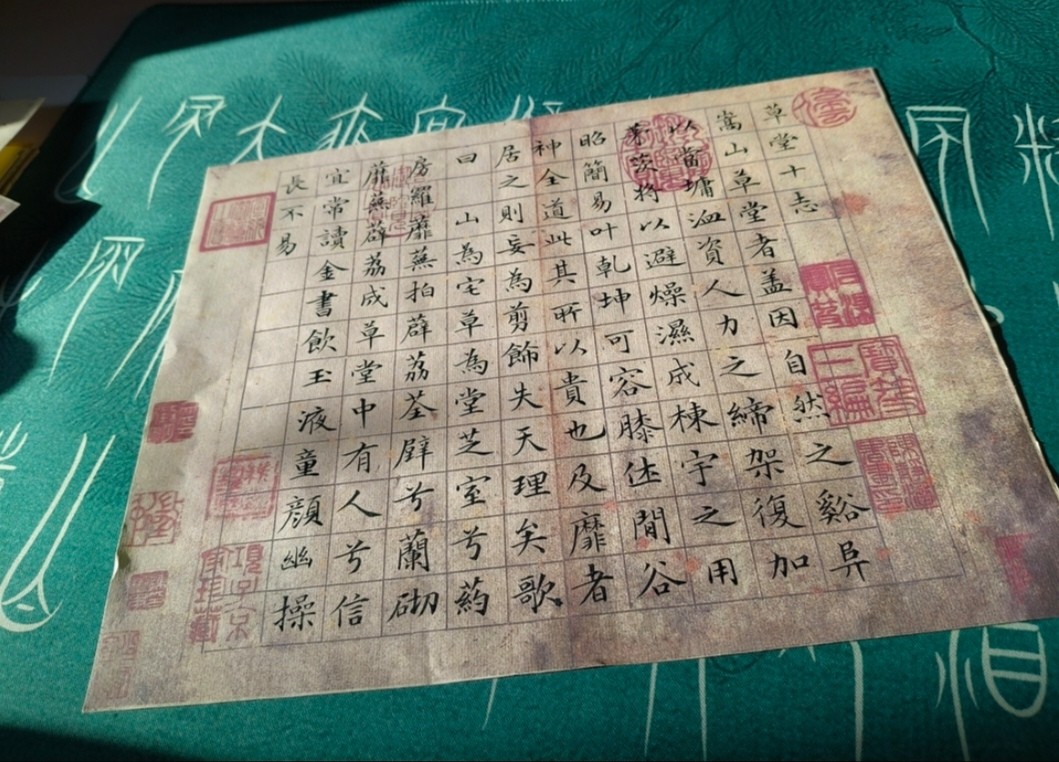 草堂十志
嵩山草堂者盖因自然之谿阜
以當墉洫資人力之締架復加
茅茨將以避燥濕成棟宇之用
昭簡易叶乾坤可容膝休間谷
神全道此其所以貴也及靡者
居之則妄為剪飾失天理矣歌
曰山為宅草為堂芝室兮葯
房羅蘼蕪拍薜荔荃壁兮蘭砌
蘼蕪薜荔成草堂中有人兮信
宜常讀金書飲玉液童顏幽操
長不易
項子京家珍藏